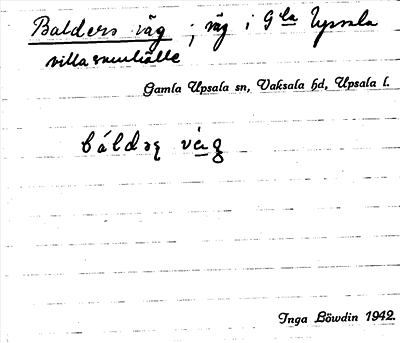 Balders väg ; väg i Gla Upsala
villasamhälle
Gamla Upsala sn, Vaksala hd, Upsala l.
báldəʂ vä̀g
Inga Böwdin 1942.